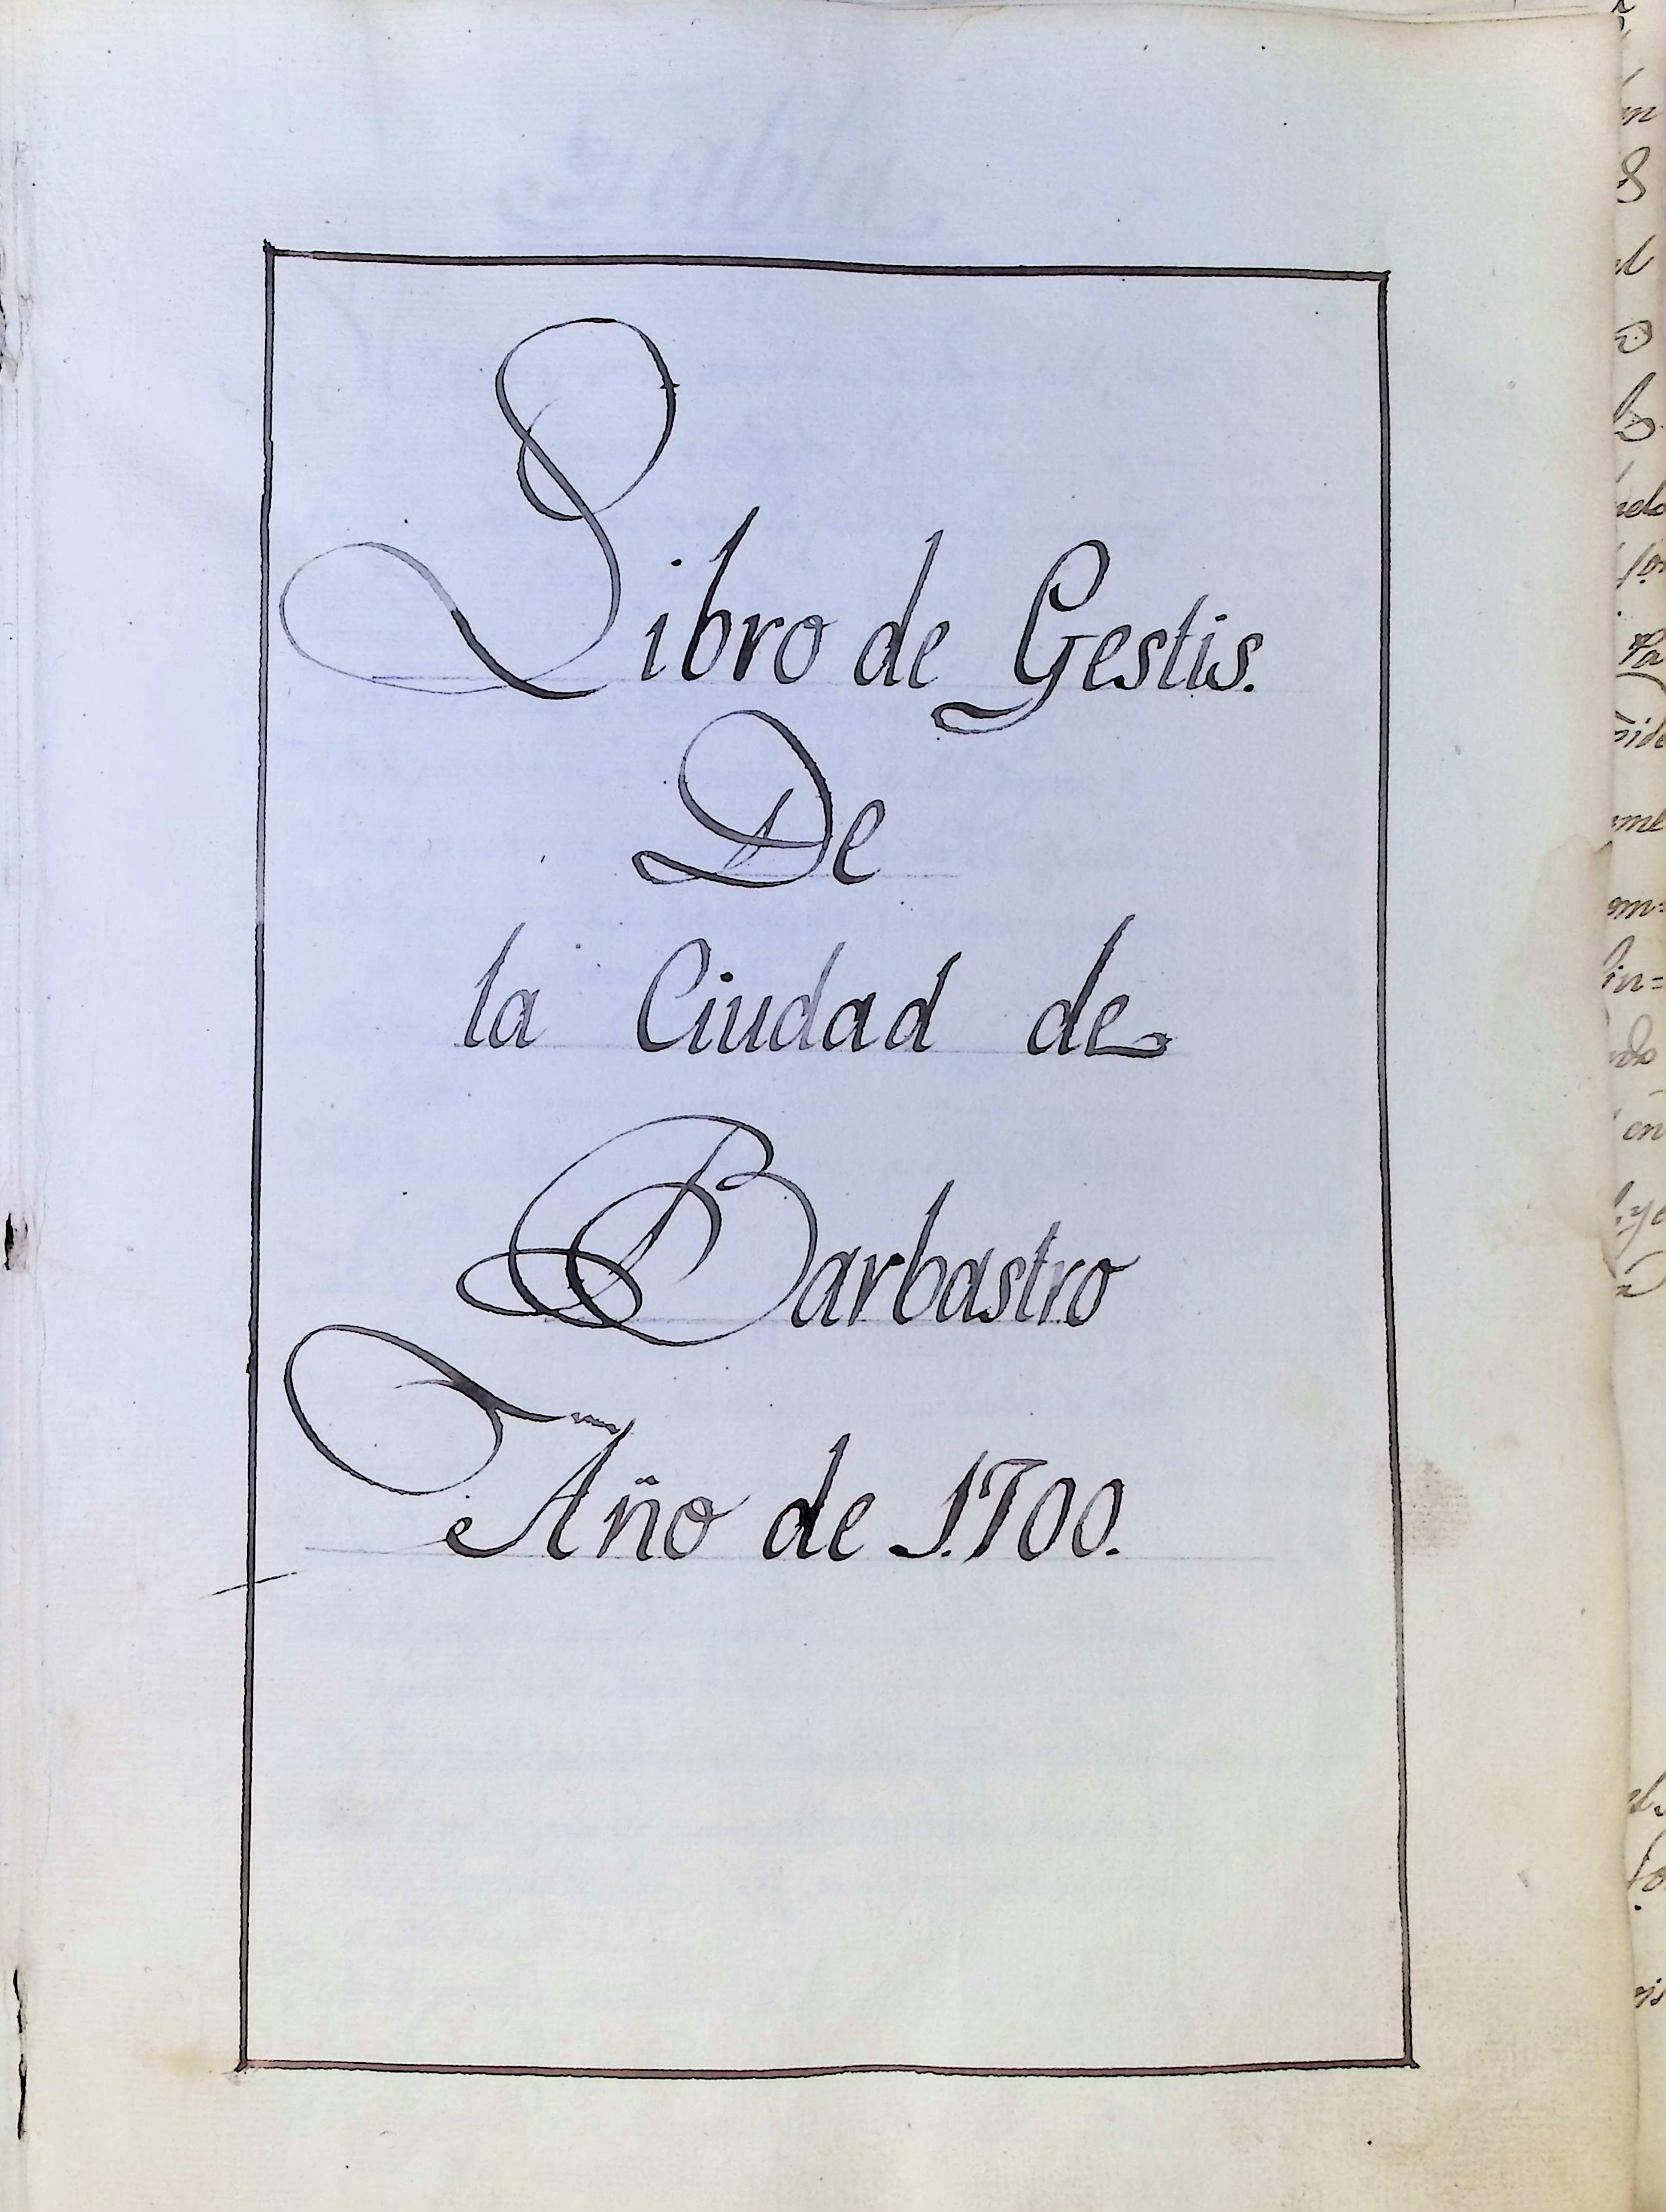 Libro de Gestis.
De
la Ciudad de
Barbastro
Año de 1700.